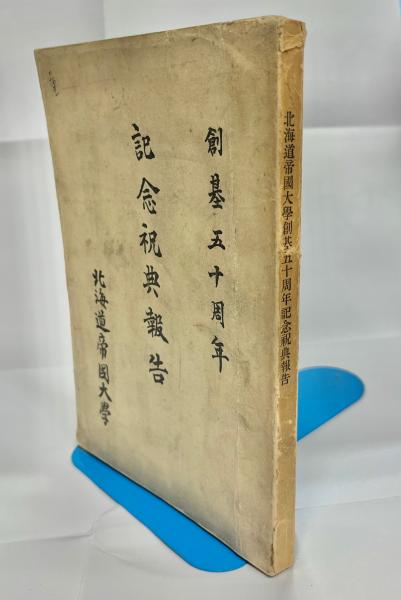 創基五十周年
記念祝典報告
北海道帝國大學
北海道帝國大學創基五十周年記念祝典報告